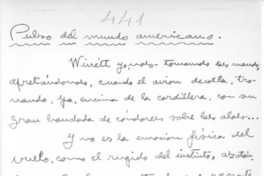 441
Pulso del mundo americano.
Winétt y yo, tomando las manos,
apretándonos, cuando el avión decolla, tro-
nando, ya, encima de la cordillera, con su
gran bandada de cóndores sobre las alas...
Y no es la emoción física del
vuelo, como el rugido del instinto, azotán